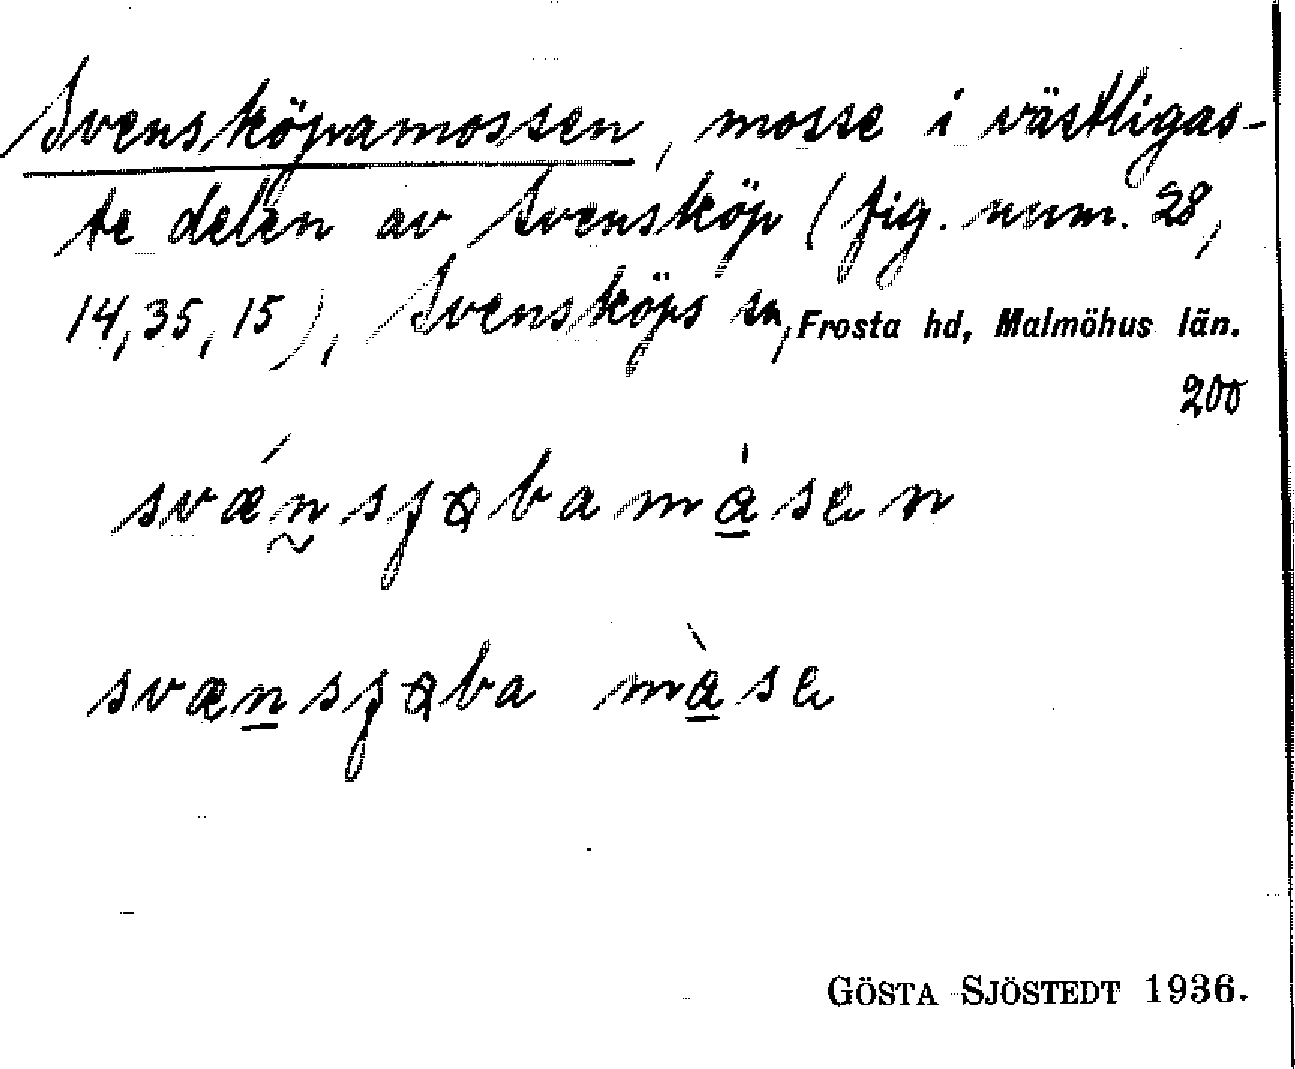 Svensköpamossen, mosse i västligas-
te delen av Svensköp (fig. num. 28,
14, 35, 15), Svensköps sn, Frosta hd, Malmöhus län.
200
svǽn̰sʃɵbamȧ̲sen
svæn̲sʃɵba mà̲se
GÖSTA SJÖSTEDT 1936.